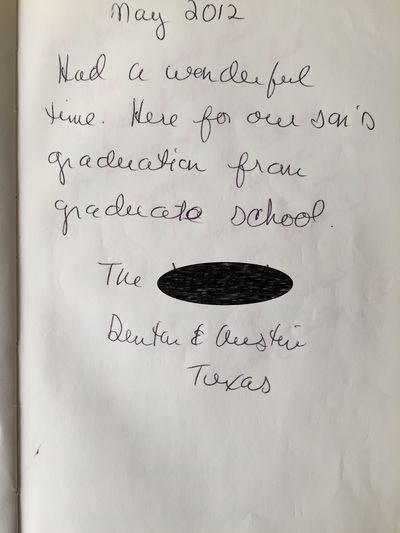 May 2012
Had a wonderful
time. Here for our son's
graduation from
graduate school.
The
Denton & Austin
Texas